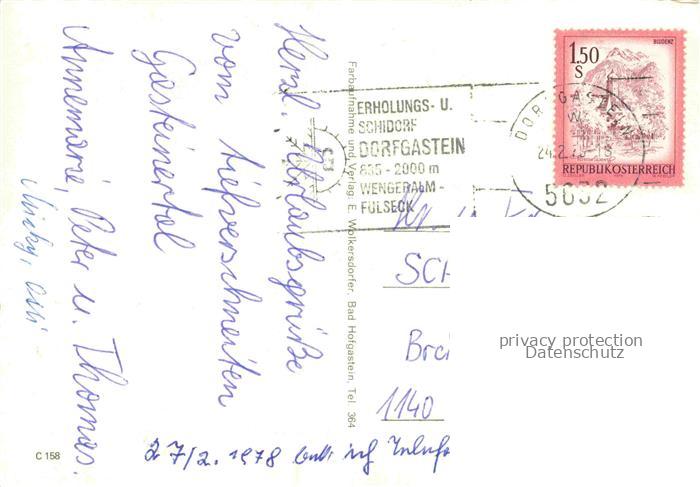 Herzl. Urlaubsgrüße
vom tiefverschneiten
Gasteinertal
Annemarie, Peter u. Thomas.
Farbaufnahme und Verlag: E. Wolkersdorfer, Bad Hofgastein, Tel. 364
ERHOLUNGS- U.
SCHIDORF
DORFGASTEIN
835 - 2000 m
WENGERALM -
FULSECK
BLUDENZ
1.50
S
REPUBLIK ÖSTERREICH
DORFGASTEIN
5632
SCH
Brei
1140
privacy protection
Datenschutz
C 158
27/2. 1978